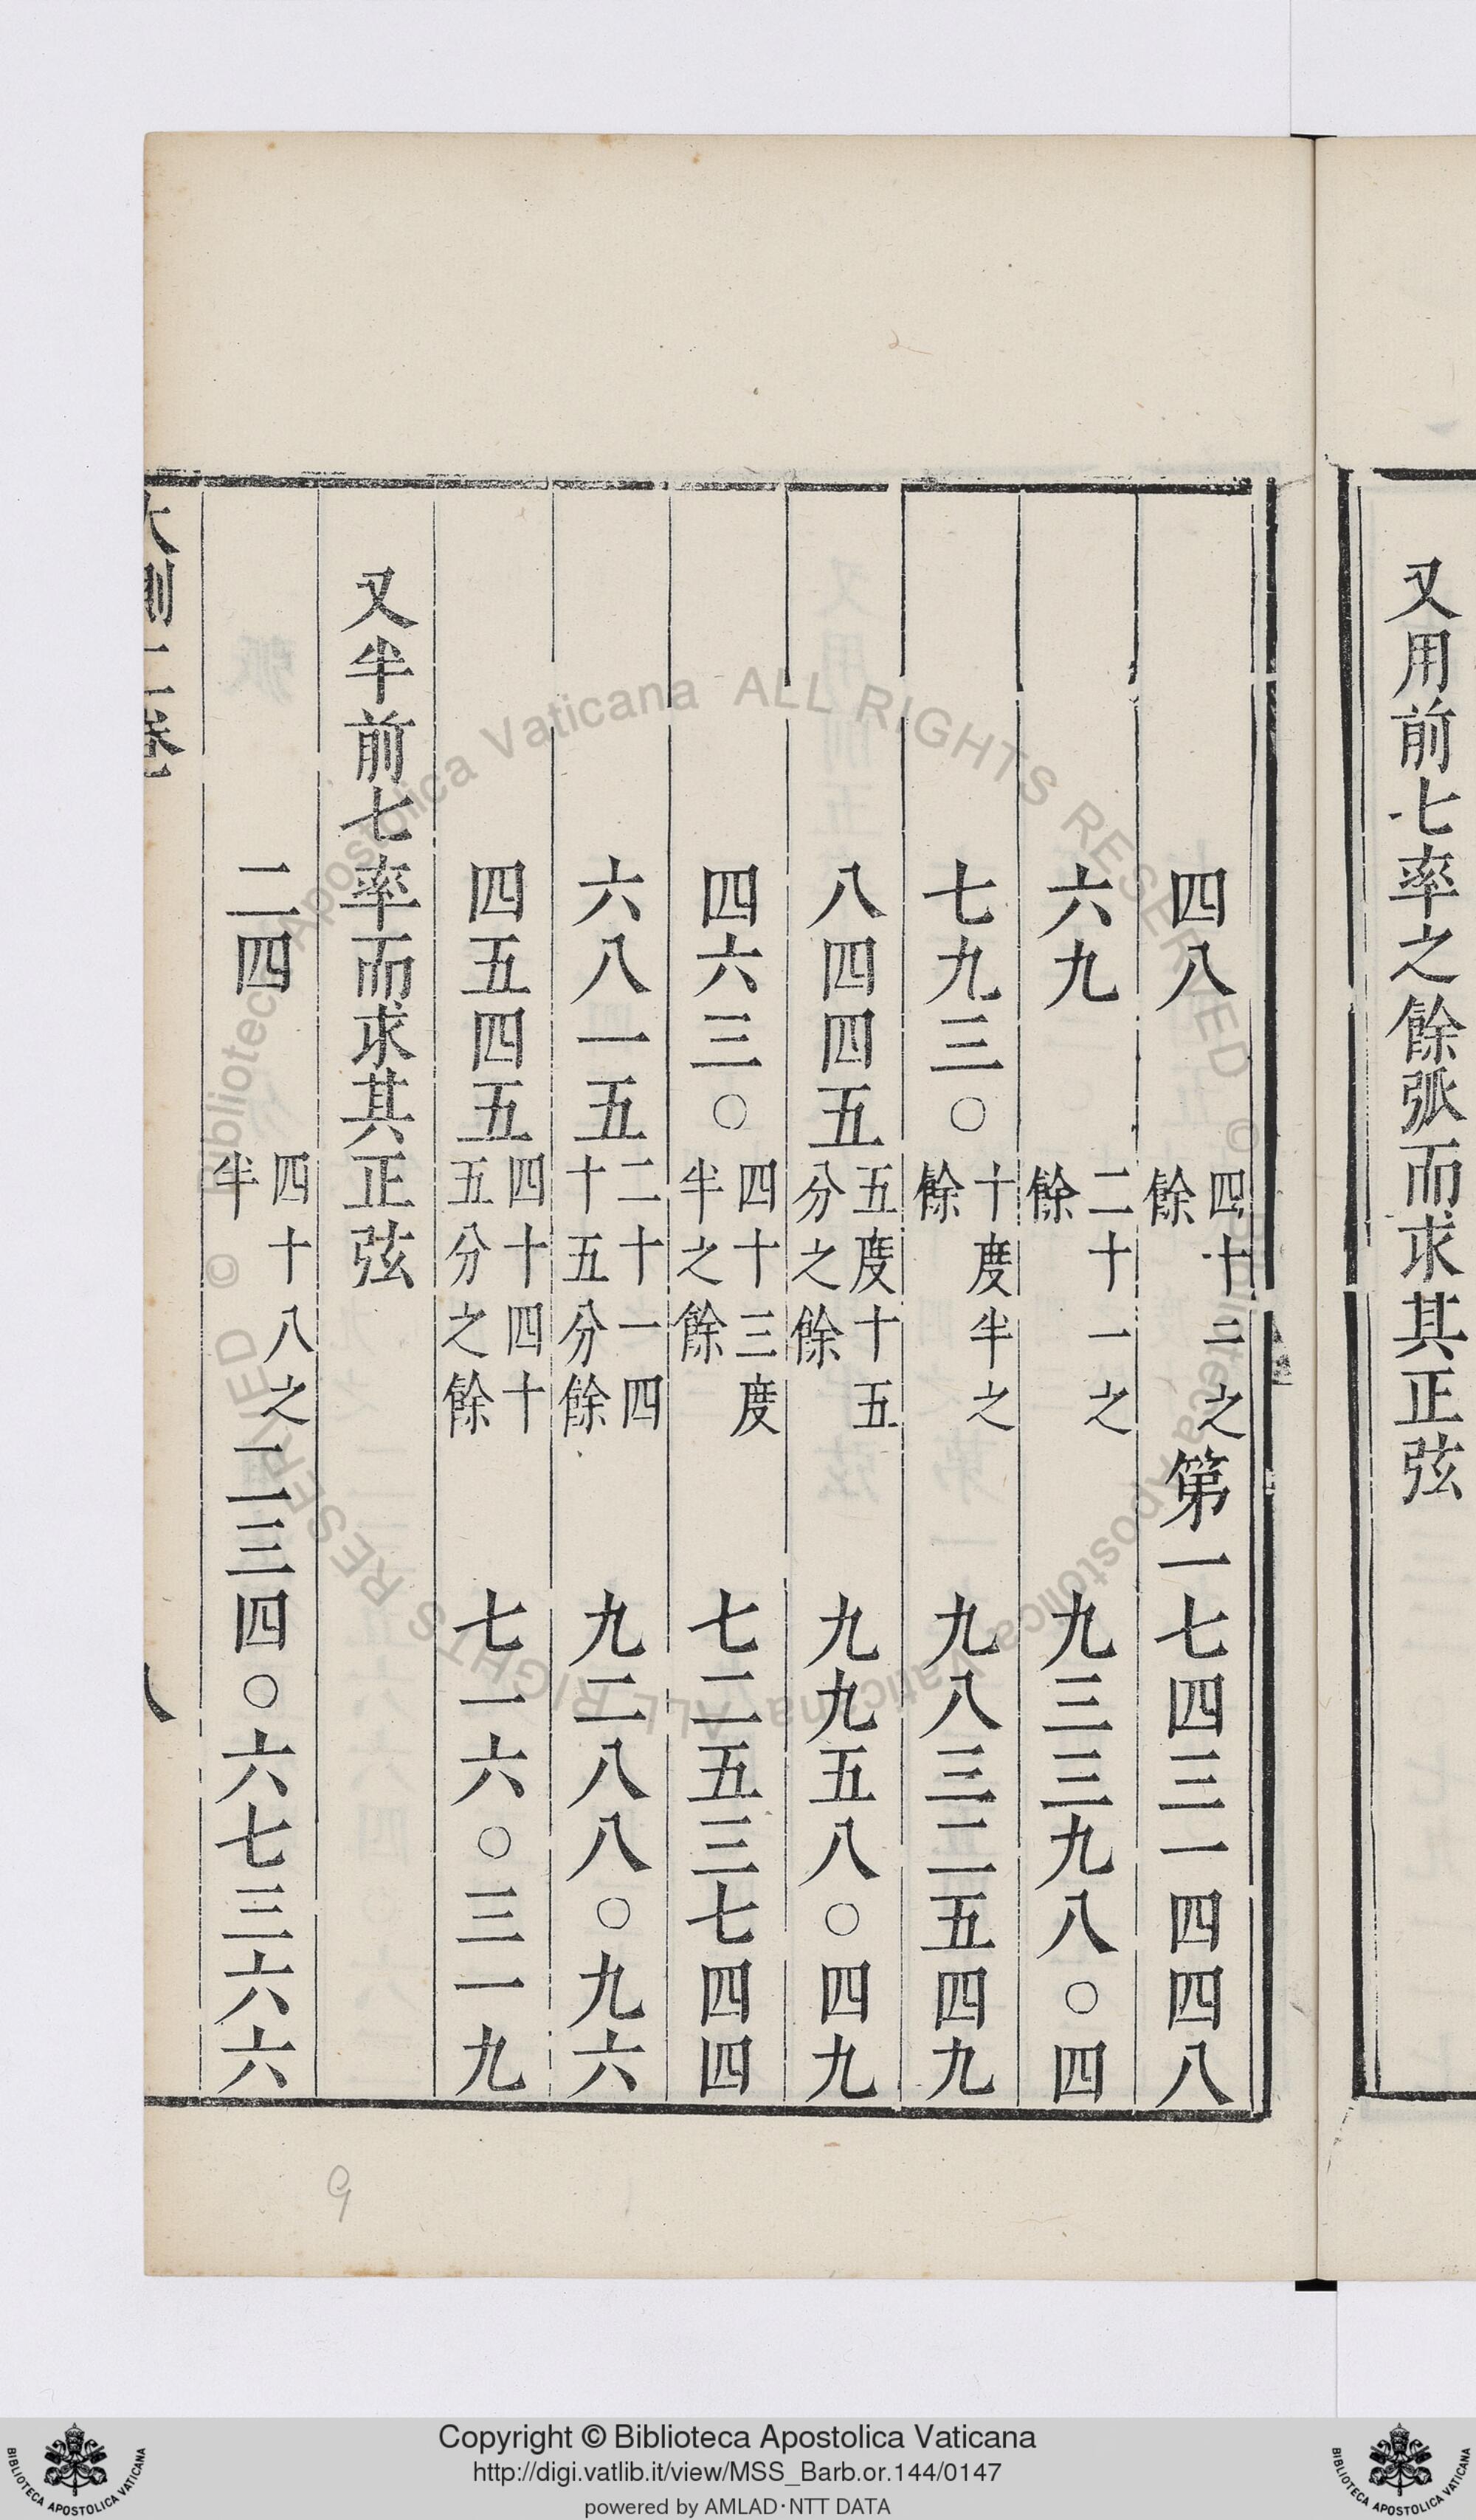 又用前七率之餘弧而求其正弦
四八 四十二之餘 第一七四三一四四八
六九 二十一之餘 九三三九八〇四
七九三〇 十度半之餘 九八三二五四九
八四四五 五度十五分之餘 九九五八〇四九
四六三〇 四十三度半之餘 七二五三七四四
六八一五 二十一四十五分餘 九二八八〇九六
四五四五 四十四十五分之餘 七一六〇三一九
又半前七率而求其正弦
二四 四十八之半 二三四〇六七三六六
大測二卷 八
Copyright © Biblioteca Apostolica Vaticana
http://digi.vatlib.it/view/MSS_Barb.or.144/0147
powered by AMLAD·NTT DATA